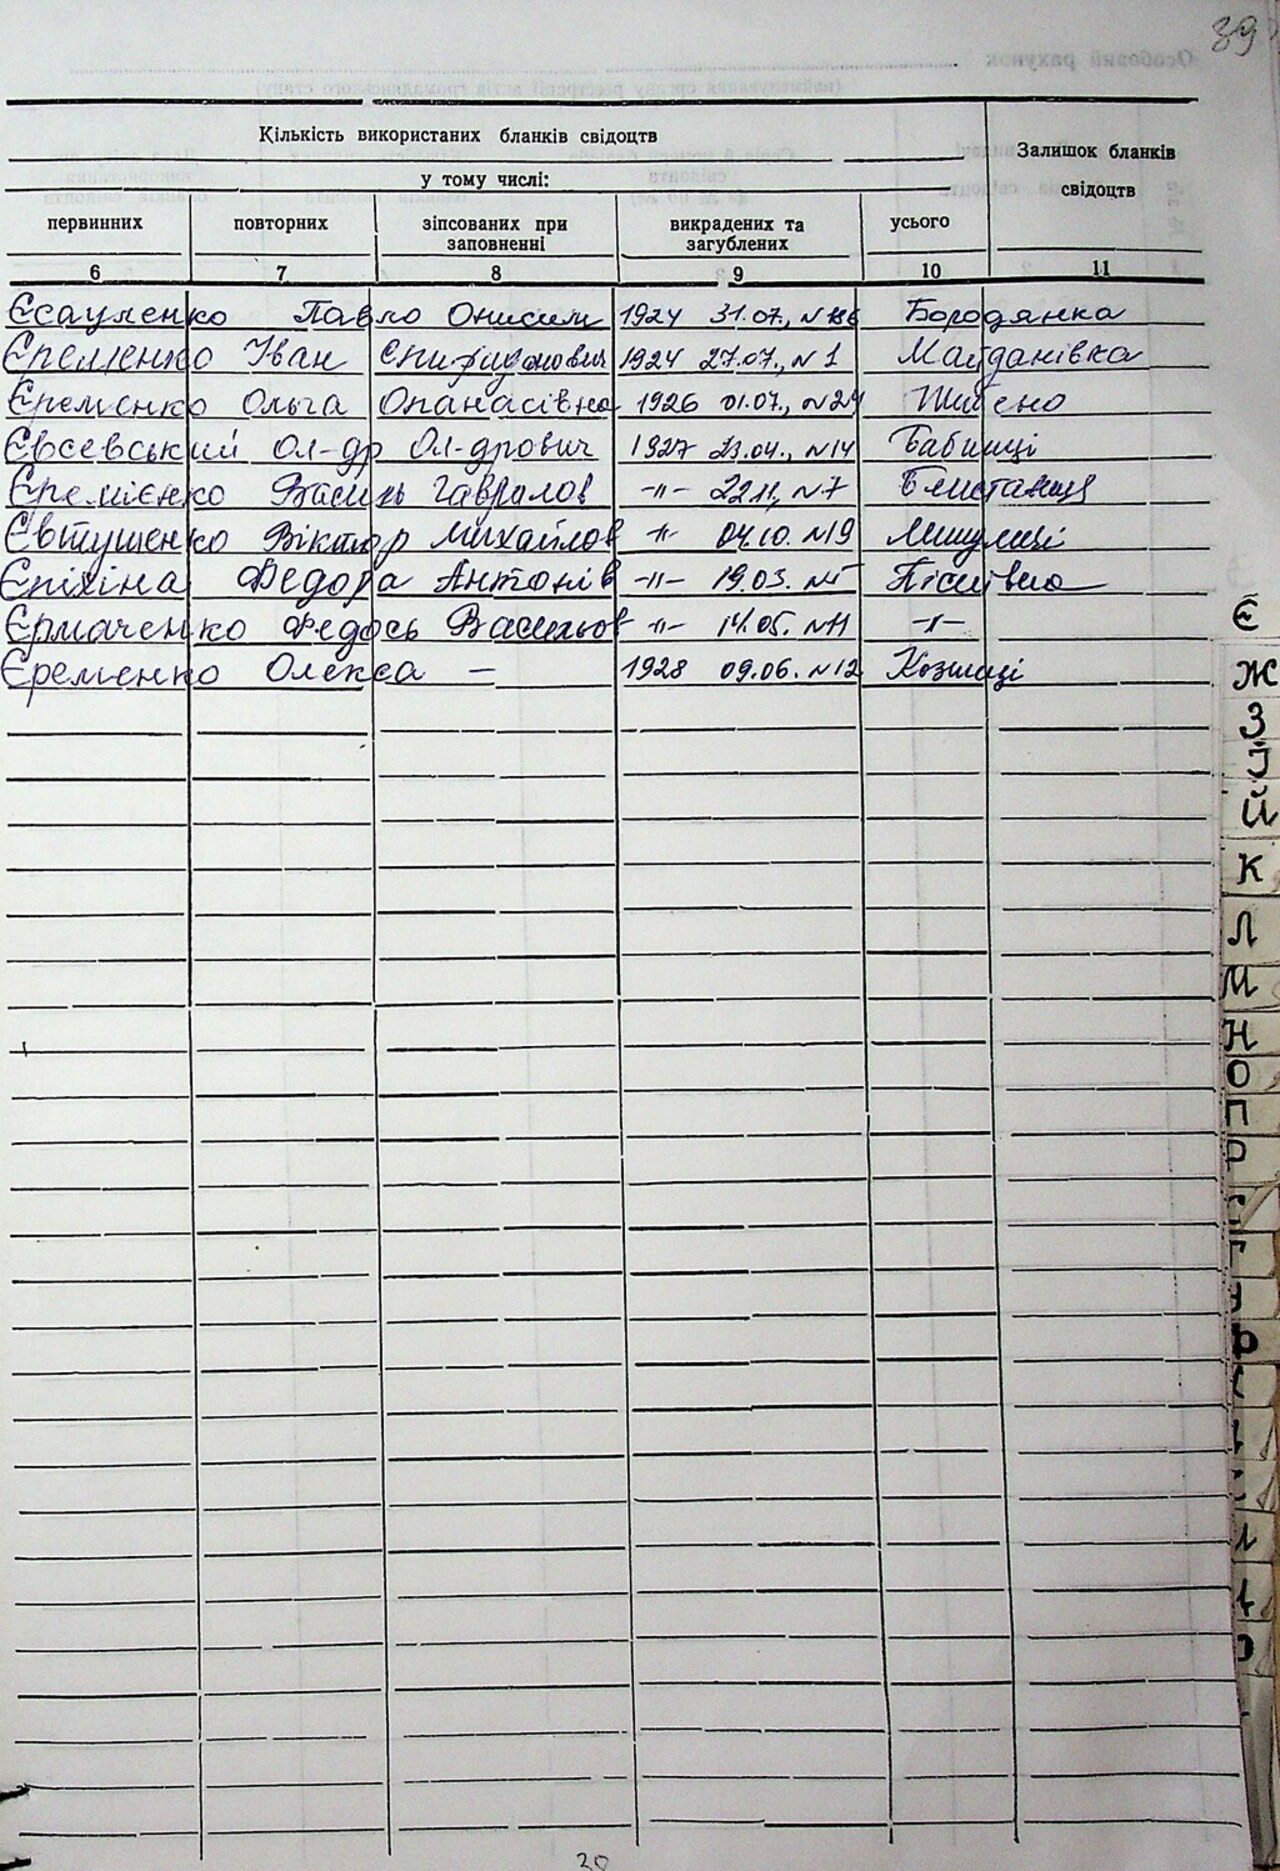 39
Кількість використаних бланків свідоцтв
Залишок бланків свідоцтв
у тому числі:
первинних повторних зіпсованих при заповненні викрадених та загублених усього
6 7 8 9 10 11
Єсауленко Павло Онисим 1924 31.07., Бородянка
Єременко Іван Єпифданович 1924 27.07., N 1 Майданівка
Єременко Ольга Опанасівна 1926 01.07., N24
Євсевський Ол-др Ол-дрович 1927 23.04., N14 Бабинці
Єремієнко Василь Гаврилов -"- 22.11, N7 Блиставиця
Євтушенко Віктор Михайлов -"- 04.10. N19
Єпіхіна Федора Антонів -"- 19.03.
Єрмаченко Федось Васильов -"- 14.05. N11 -"-
Єременко Олекса — 1928 09.06. N12 Козинці
Є
Ж
З
І
Й
К
Л
М
Н
О
П
Р